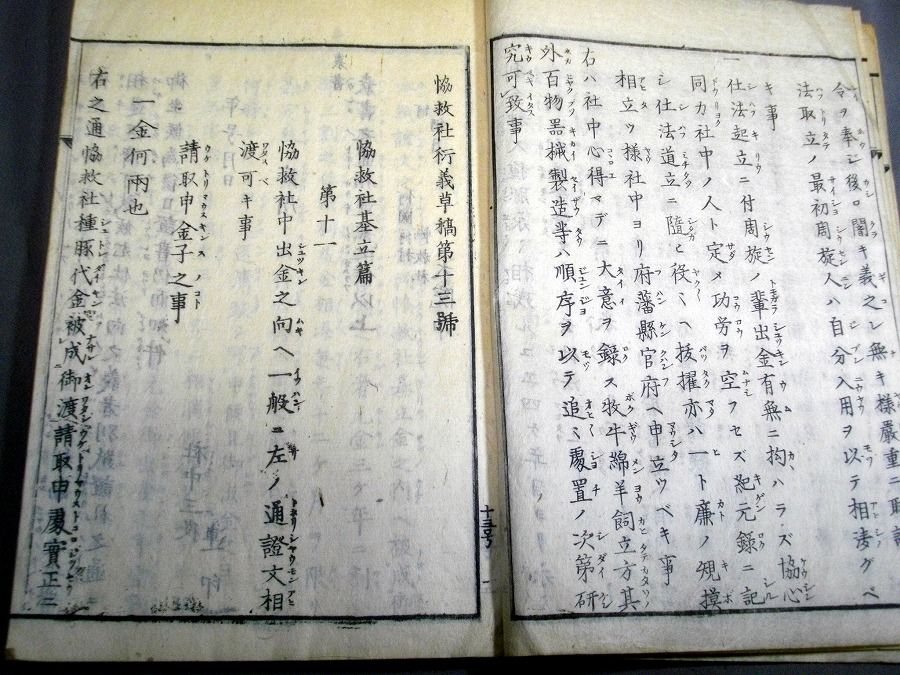 令ヲ奉シ後ロ闇キ義之レ無キ様嚴重ニ取調
法取立ノ最初周旋人ハ自分入用ヲ以テ相湊グベ
キ事
一仕法起立ニ付周旋ノ輩出金有無ニ拘ハラズ協心
同力社中ノ人ト定メ功労ヲ空フセズ紀元録ニ記
シ仕法道立ニ隨ヒ役々ヘ抜擢亦ハ一ト廉ノ規摸
相立ツ様社中ヨリ府藩縣官府ヘ申立ツベキ事
右ハ社中心得マデニ大意ヲ録ス牧牛綿羊飼立方其
外百物器械製造等ハ順序ヲ以テ追々處置ノ次第研
究可致事
十三号
協救社衍義草稿第十三號
協救社基立篇以上
第十一
協救社中出金之向ヘ一般ニ左ノ通證文相
渡可キ事
請取申金子之事
一金何兩也
右之通協救社種豚代金被成御渡請取申處實正ニ